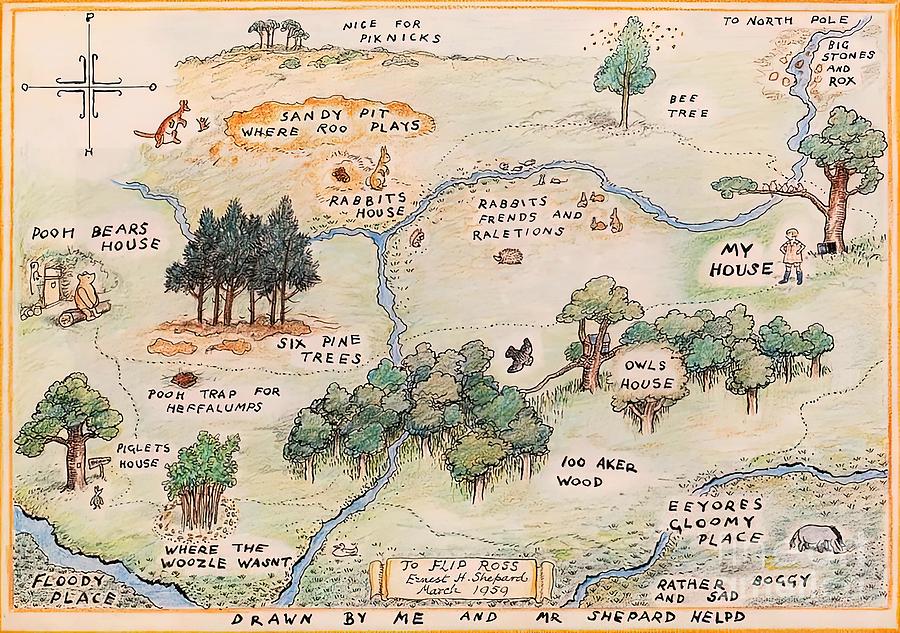 P
H
NICE FOR
PIKNICKS
TO NORTH POLE
BIG
STONES
AND
ROX
BEE
TREE
SANDY PIT
WHERE ROO PLAYS
RABBITS
HOUSE
RABBITS
FRENDS AND
RALETIONS
POOH BEARS
HOUSE
MY
HOUSE
SIX PINE
TREES
OWLS
HOUSE
POOH TRAP FOR
HEFFALUMPS
PIGLETS
HOUSE
100 AKER
WOOD
EEYORES
GLOOMY
PLACE
WHERE THE
WOOZLE WASNT
FLOODY
PLACE
TO FLIP ROSS
Ernest H. Shepard
March 1959
RATHER BOGGY
AND SAD
DRAWN BY ME AND MR SHEPARD HELPD